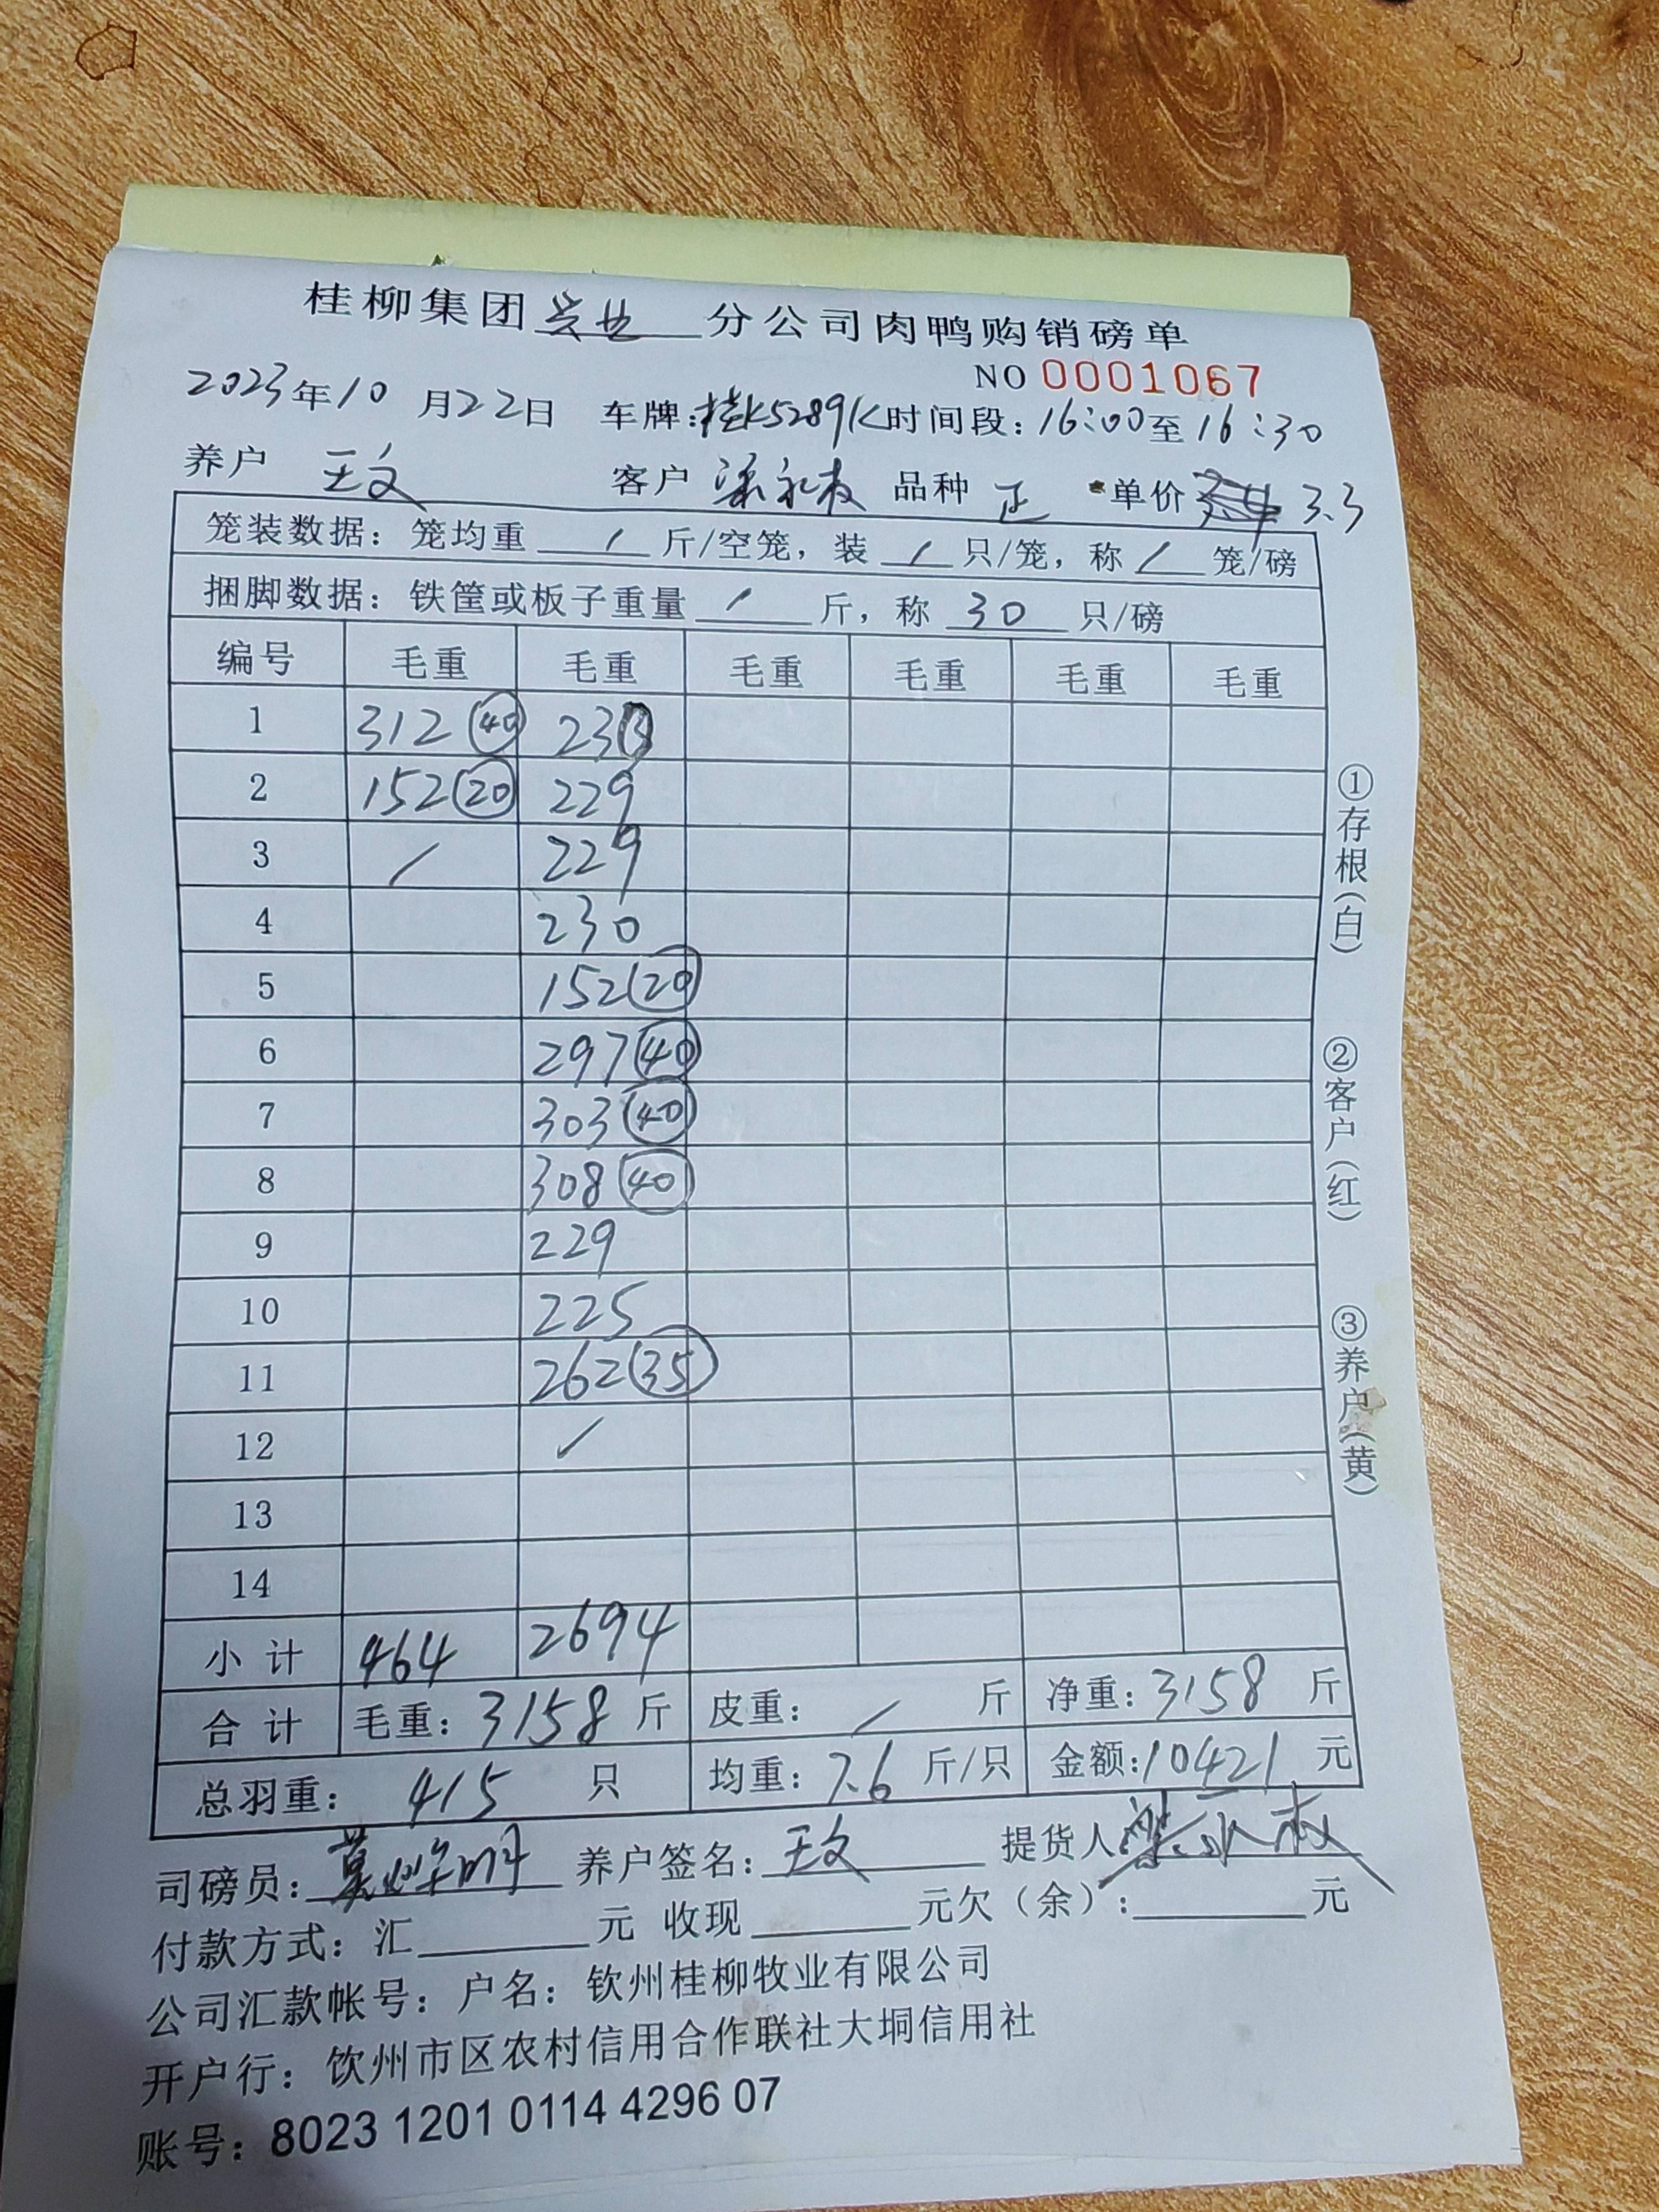 桂柳集团兴业分公司肉鸭购销磅单
NO 0001067
2023年10月22日 车牌:桂K5289K时间段:16:00至16:30
养户 王文 客户 梁永权 品种 正 单价 3.3
笼装数据:笼均重 / 斤/空笼,装 / 只/笼,称 / 笼/磅
捆脚数据:铁筐或板子重量 / 斤,称 30 只/磅
编号 毛重 毛重 毛重 毛重 毛重 毛重
1 312 (40) 230
2 152 (20) 229
3 / 229
4 230
5 152 (20)
6 297 (40)
7 303 (40)
8 308 (40)
9 229
10 225
11 262 (35)
12 /
13
14
小计 464 2694
合计 毛重:3158斤 皮重: / 斤 净重:3158 斤
总羽重: 415 只 均重:7.6 斤/只 金额:10421 元
司磅员: 养户签名:王文 提货人:梁永权
付款方式:汇 元 收现 元欠(余): 元
公司汇款帐号:户名:钦州桂柳牧业有限公司
开户行:钦州市区农村信用合作联社大垌信用社
账号:8023 1201 0114 4296 07
①存根(白)
②客户(红)
③养户(黄)